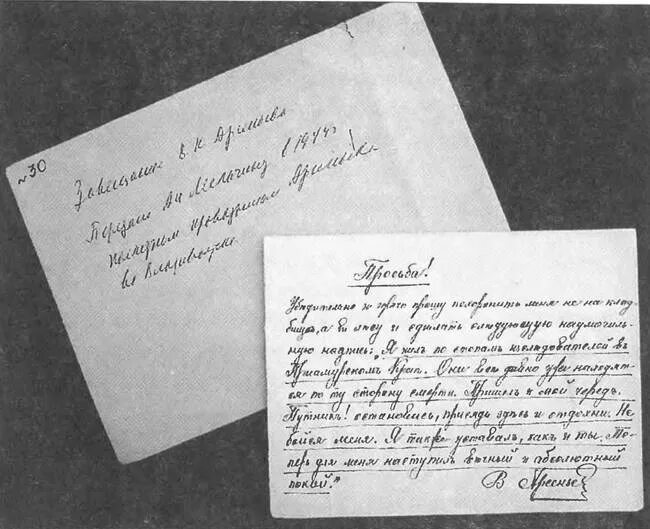 №30
Завещание В. К. Арсеньева
Передано Мельчину в 1944г
последним проводником Арсеньева
во Владивостоке
Просьба!
Убедительно и прошу похоронить меня не на клад-
бище, а въ лѣсу и сдѣлать следующую надмогиль-
ную надпись: "Я жилъ по стопамъ изслѣдователей въ
Приамурскомъ Краѣ. Они всѣ давно уже находят-
ся по ту сторону смерти. Пришелъ и мой чередъ.
Путникъ! остановись, присядь здѣсь и отдохни. Не
бойся меня. Я также уставалъ, какъ и ты. Те-
перь для меня наступилъ вѣчный и абсолютный
покой."
В Арсеньев